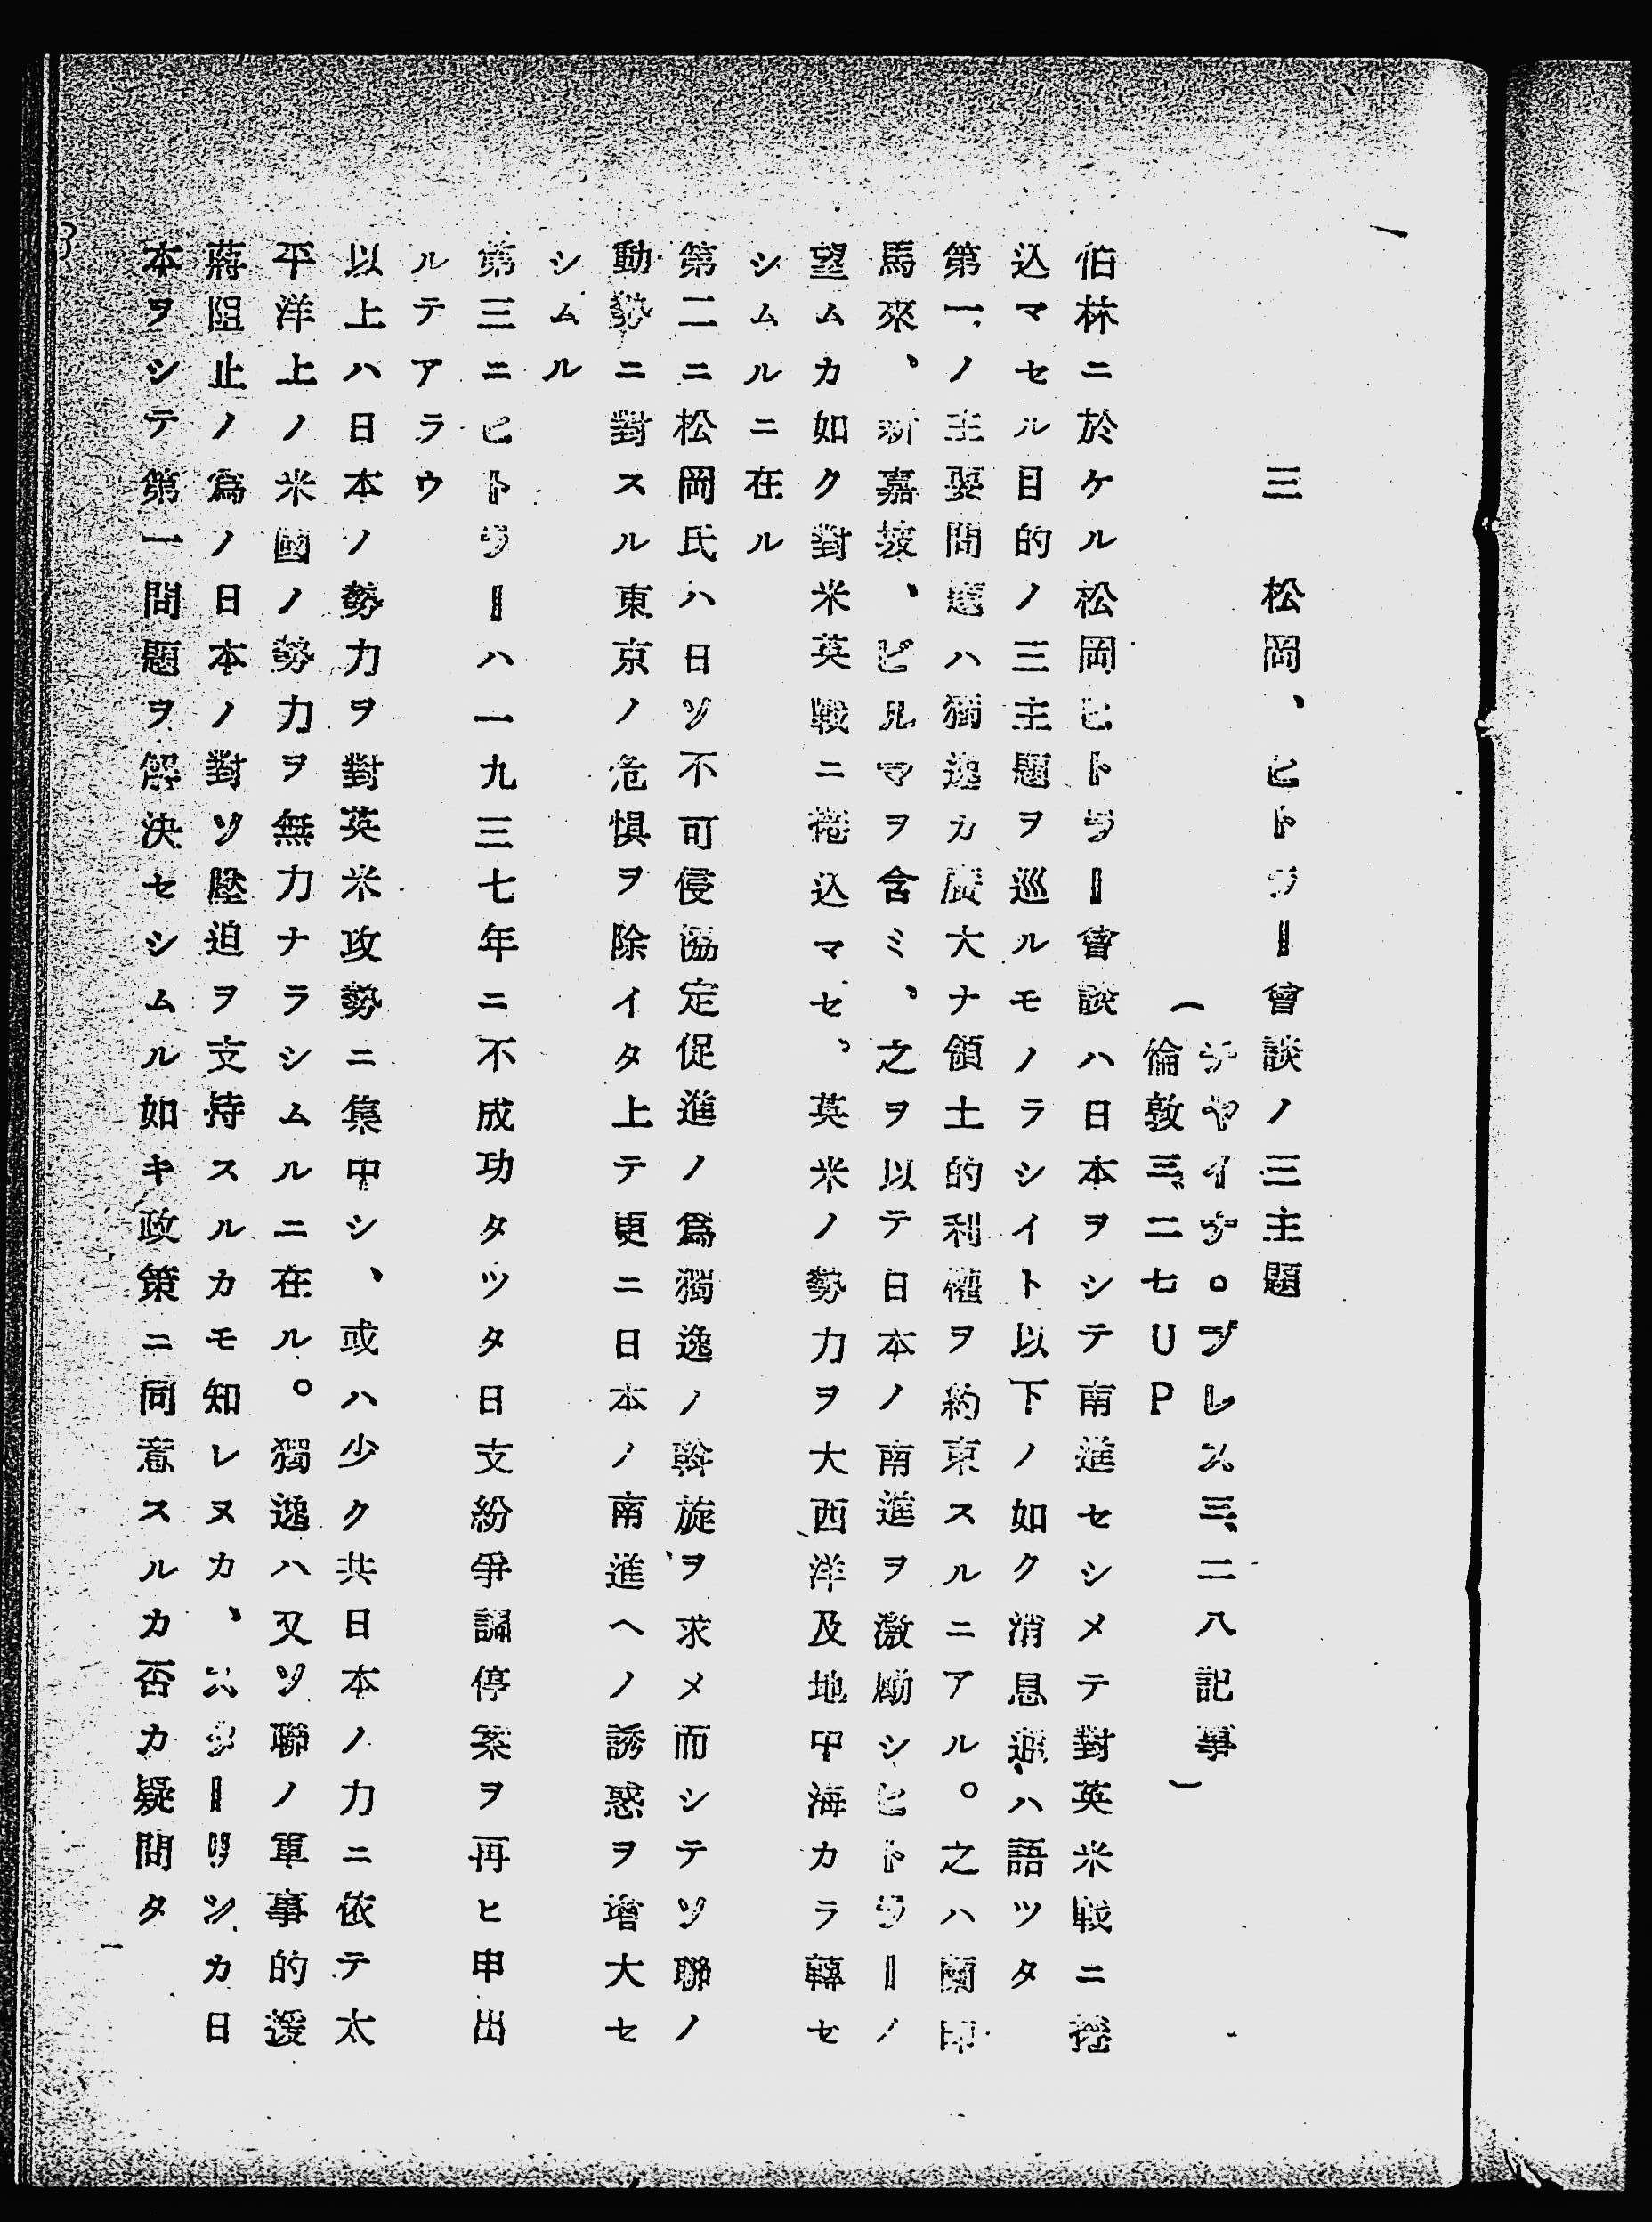 三　松岡、ヒトラー會談ノ三主題
（チヤイナ。プレス三、二八記事）
倫敦三、二七UP
伯林ニ於ケル松岡ヒトラー會談ハ日本ヲシテ南進セシメテ對英米戰ニ捲
込マセル目的ノ三主題ヲ巡ルモノラシイト以下ノ如ク消息通ハ語ツタ
第一ノ主要問題ハ獨逸カ廣大ナ領土的利權ヲ約束スルニアル。之ハ蘭印
馬來、新嘉坡、ビルマヲ含ミ、之ヲ以テ日本ノ南進ヲ激勵シヒトラーノ
望ムカ如ク對米英戰ニ捲込マセ、英米ノ勢力ヲ大西洋及地中海カラ轉セ
シムルニ在ル
第二ニ松岡氏ハ日ソ不可侵協定促進ノ爲獨逸ノ斡旋ヲ求メ而シテソ聯ノ
動勢ニ對スル東京ノ危惧ヲ除イタ上テ更ニ日本ノ南進ヘノ誘惑ヲ增大セ
シムル
第三ニヒトラーハ一九三七年ニ不成功タツタ日支紛爭調停案ヲ再ヒ申出
ルテアラウ
以上ハ日本ノ勢力ヲ對英米攻勢ニ集中シ、或ハ少ク共日本ノ力ニ依テ太
平洋上ノ米國ノ勢力ヲ無力ナラシムルニ在ル。獨逸ハ又ソ聯ノ軍事的援
蔣阻止ノ爲ノ日本ノ對ソ壓迫ヲ支持スルカモ知レヌカ、スターリンカ日
本ヲシテ第一問題ヲ解決セシムル如キ政策ニ同意スルカ否カ疑問タ